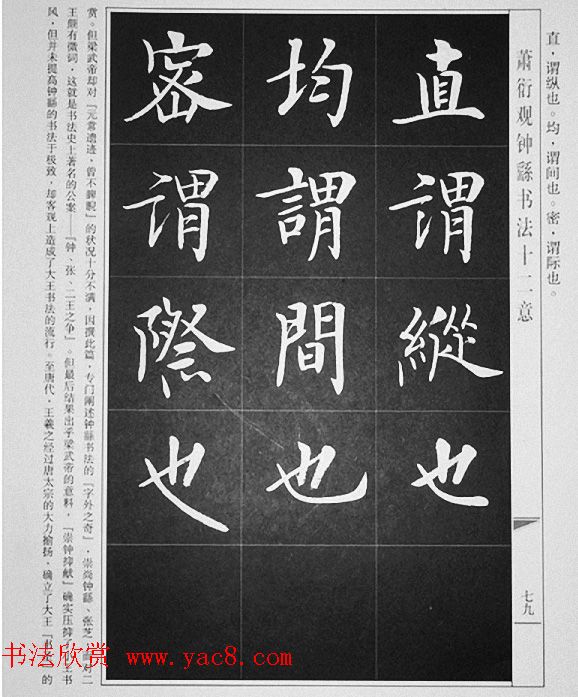 直，谓纵也。均，谓间也。密，谓际也。
萧衍观钟繇书法十二意
七九
直謂縱也
均謂間也
密謂際也
赏。但梁武帝却对『元常遗迹，曾不睥睨』的状况十分不满，因撰此篇，专门阐述钟繇书法的『字外之奇』，崇尚钟繇、张芝，对二
王颇有微词，这就是书法史上著名的公案——『钟、张、二王之争』。但最后结果出乎梁武帝的意料，『崇钟抑献』确实压抑了小王书
风，但并未提高钟繇的书法于极致，却客观上造成了大王书法的流行。至唐代，王羲之经过唐太宗的大力揄扬，确立了大王『书圣』的
书法欣赏 www.yac8.com